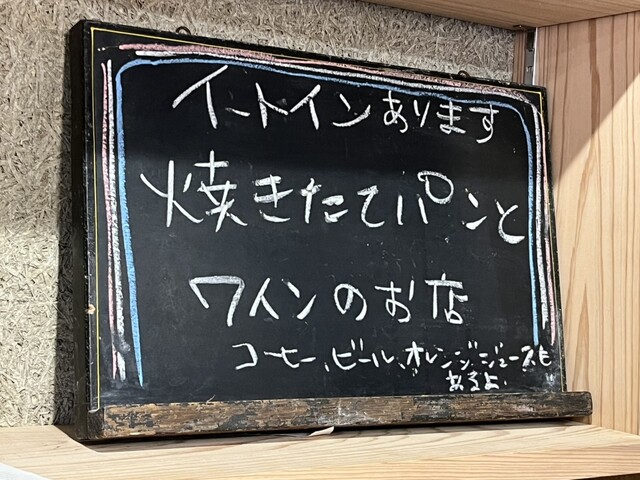 イートインあります
焼きたてパンと
ワインのお店
コーヒー、ビール、オレンジジュースも
あるよ。